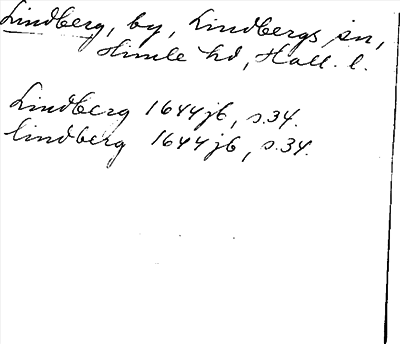 Lindberg, by, Lindbergs sn,
Himle hd, Hall. l.
Lindberg 1644 jb, s.34.
lindberg 1644 jb, s.34.